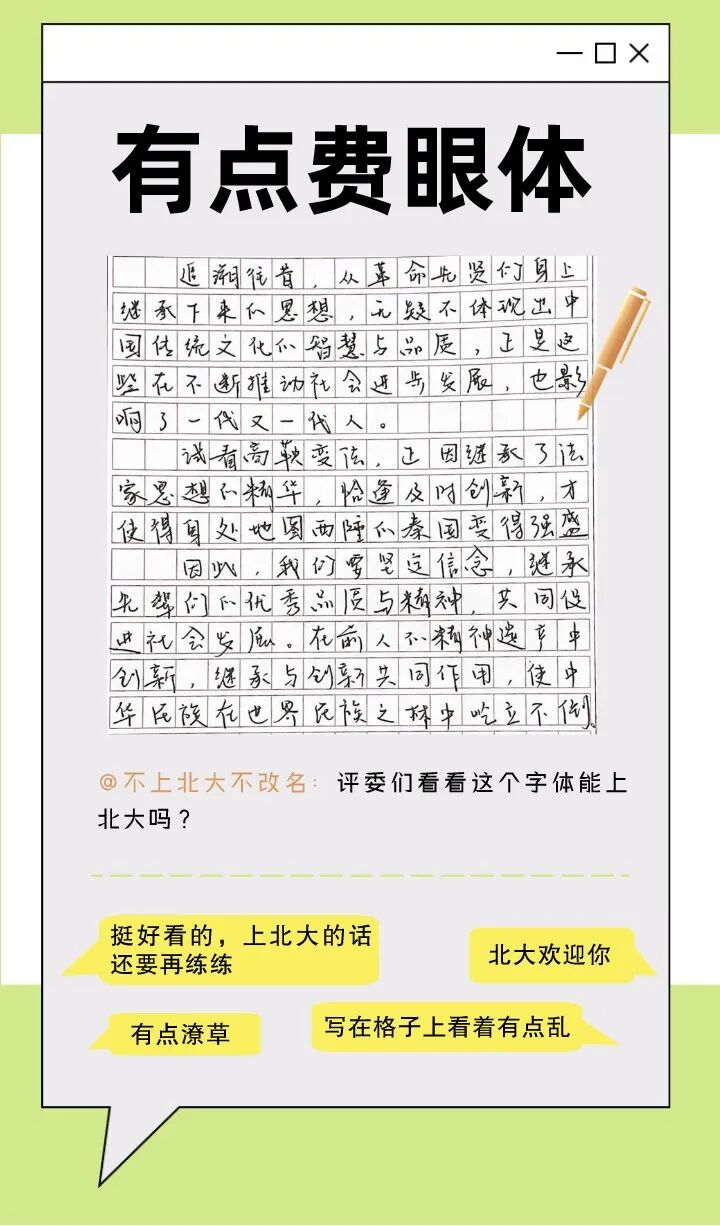 有点费眼体
追溯往昔，从革命先贤们身上
继承下来的思想，无疑不体现出中
国传统文化的智慧与品质，正是这
些在不断推动社会进步发展，也影
响了一代又一代人。
试看商鞅变法，正因继承了法
家思想的精华，恰逢及时创新，才
使得身处地图西陲的秦国变得强盛
因此，我们要坚定信念，继承
先辈们的优秀品质与精神，共同促
进社会发展。在前人的精神遗产中
创新，继承与创新共同作用，使中
华民族在世界民族之林中屹立不倒。
@不上北大不改名：评委们看看这个字体能上
北大吗？
挺好看的，上北大的话
还要再练练
北大欢迎你
有点潦草
写在格子上看着有点乱